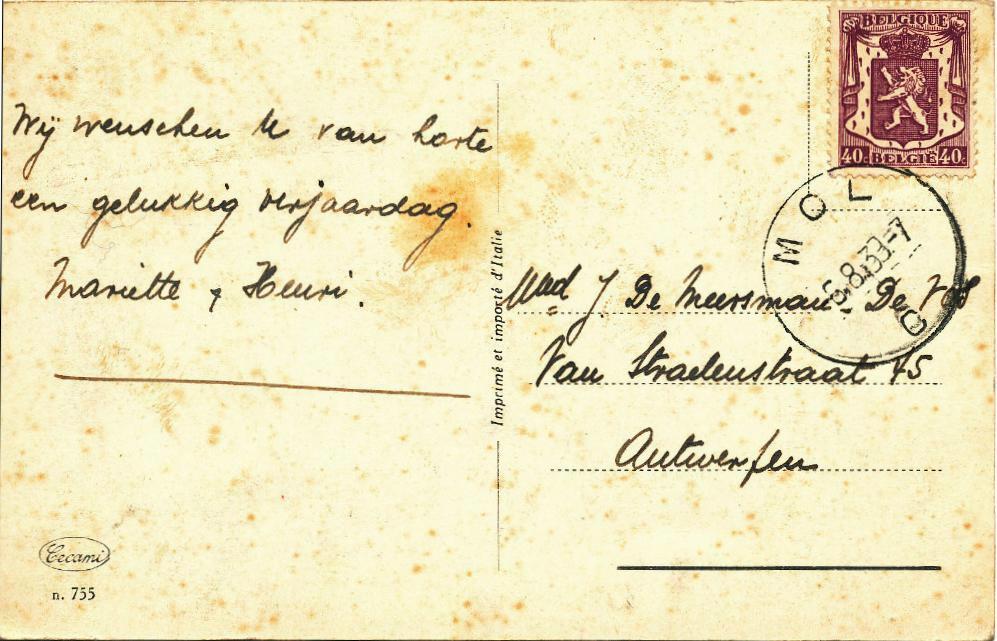 Wij wenschen U van harte
een gelukkig verjaardag.
Mariette & Henri.
Cecami
n. 755
Imprimé et importé d'Italie
BELGIQUE
40c BELGIË 40c
MOL
8.39-7
Mad J De Meersman - De Vos
Van Straelenstraat 45
Antwerpen